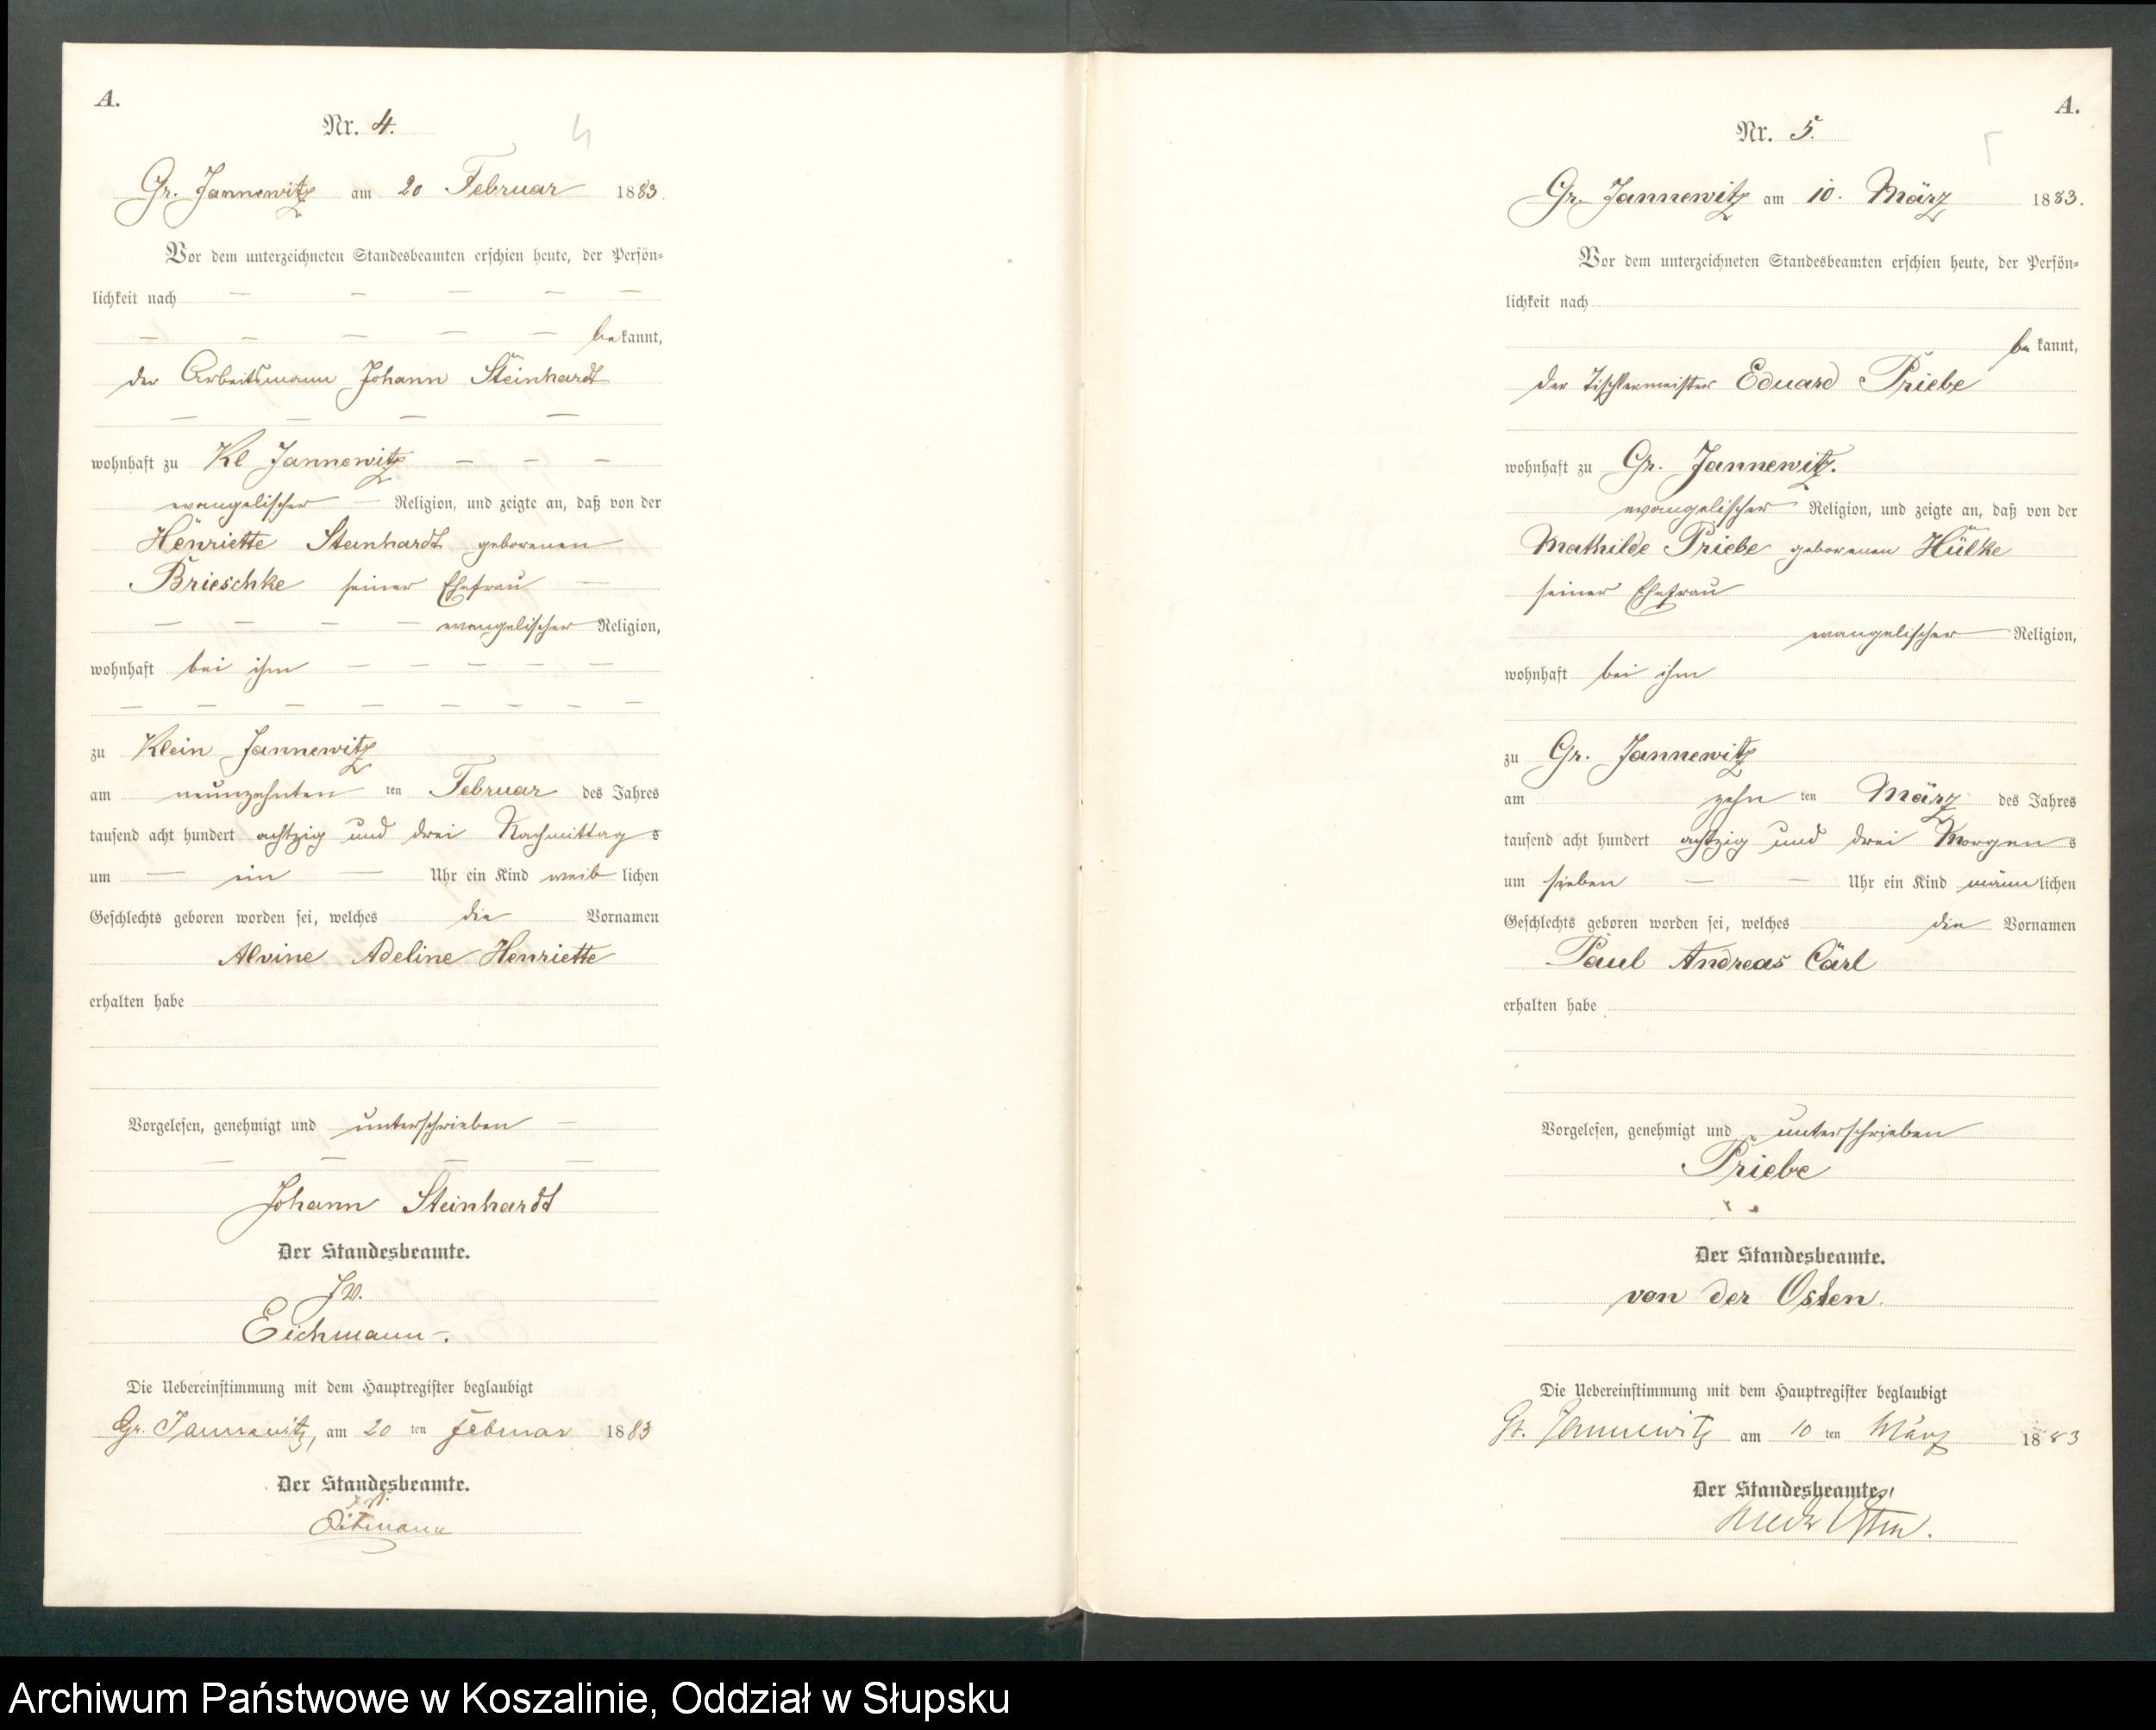 A.
Nr. 4.
4
Gr. Jannewitz am 20 Februar 1883.
Vor dem unterzeichneten Standesbeamten erschien heute, der Persön-
lichkeit nach — — — — —
— — — — — bekannt,
der Arbeitsmann Johann Steinhardt
— — — —
wohnhaft zu Kl Jannewitz — — —
evangelischer — Religion, und zeigte an, daß von der
Henriette Steinhardt geborenen
Brieschke seiner Ehefrau —
— — — — evangelischer Religion,
wohnhaft bei ihm — — — — —
— — — — — — — —
zu Klein Jannewitz
am neunzehnten ten Februar des Jahres
tausend acht hundert achtzig und drei Nachmittags
um — ein — Uhr ein Kind weiblichen
Geschlechts geboren worden sei, welches die Vornamen
Alvine Adeline Henriette
erhalten habe
Vorgelesen, genehmigt und unterschrieben —
— — — —
Johann Steinhardt
Der Standesbeamte.
J.V.
Eichmann.
Die Uebereinstimmung mit dem Hauptregister beglaubigt
Gr. Jannewitz, am 20 ten Februar 1883
Der Standesbeamte.
J.V.
Eichmann
A.
Nr. 5.
5
Gr. Jannewitz am 10. März 1883.
Vor dem unterzeichneten Standesbeamten erschien heute, der Persön-
lichkeit nach
bekannt,
der Tischlermeister Eduard Priebe
wohnhaft zu Gr. Jannewitz.
evangelischer Religion, und zeigte an, daß von der
Mathilde Priebe geborenen Hülke
seiner Ehefrau
evangelischer Religion,
wohnhaft bei ihm
zu Gr. Jannewitz
am zehn ten März des Jahres
tausend acht hundert achtzig und drei Morgens
um sieben — — Uhr ein Kind männlichen
Geschlechts geboren worden sei, welches die Vornamen
Paul Andreas Carl
erhalten habe
Vorgelesen, genehmigt und unterschrieben
Priebe
Der Standesbeamte.
von der Osten.
Die Uebereinstimmung mit dem Hauptregister beglaubigt
Gr. Jannewitz am 10 ten März 1883
Der Standesbeamte.
von der Osten.
Archiwum Państwowe w Koszalinie, Oddział w Słupsku